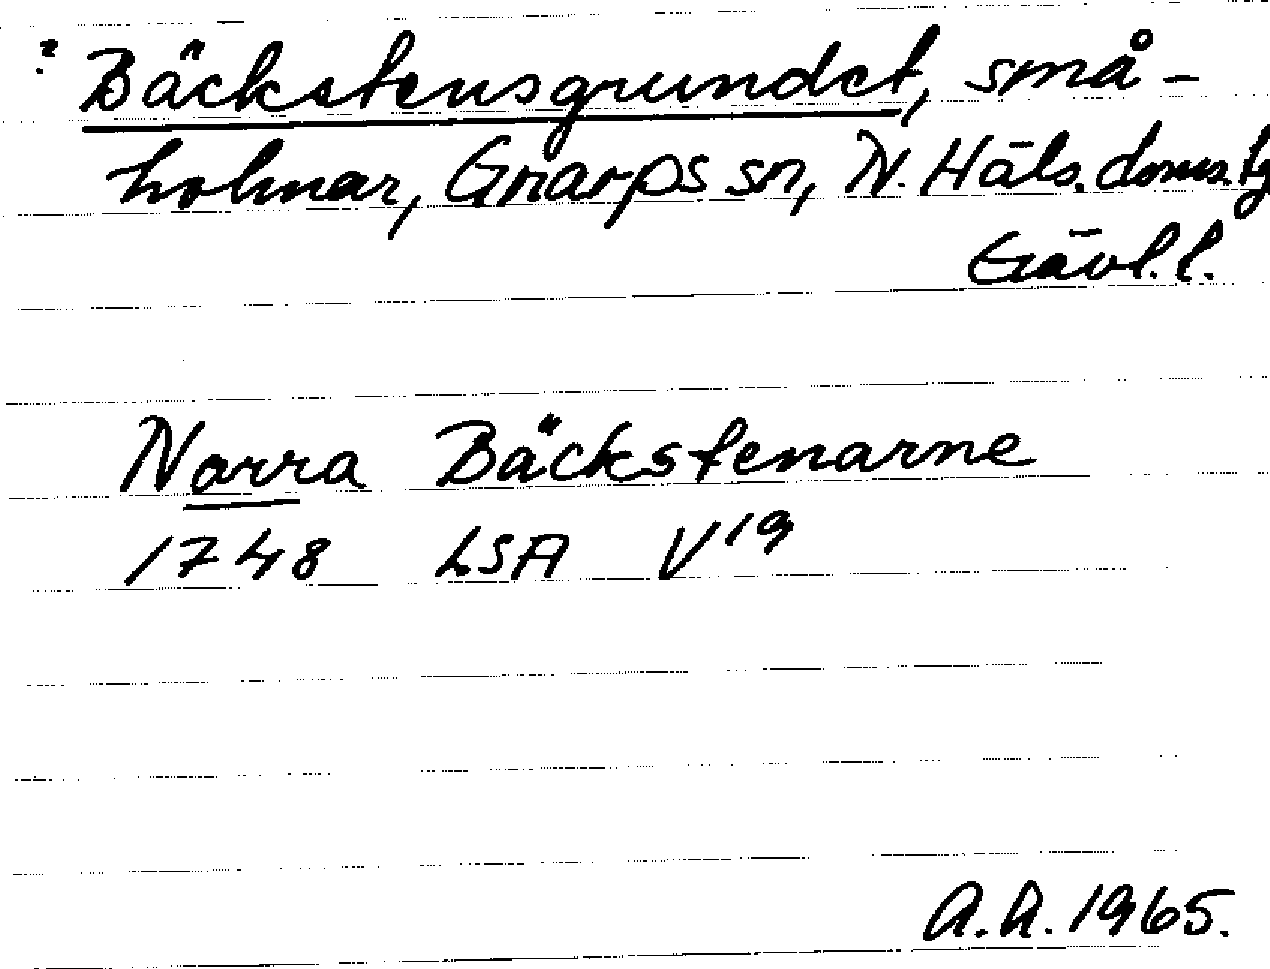 ? Bäckstensgrundet, små-
holmar, Gnarps sn, N. Häls. doms. tg
Gävl. l.
Norra Bäckstenarne
1748 LSA V19
A.A. 1965.